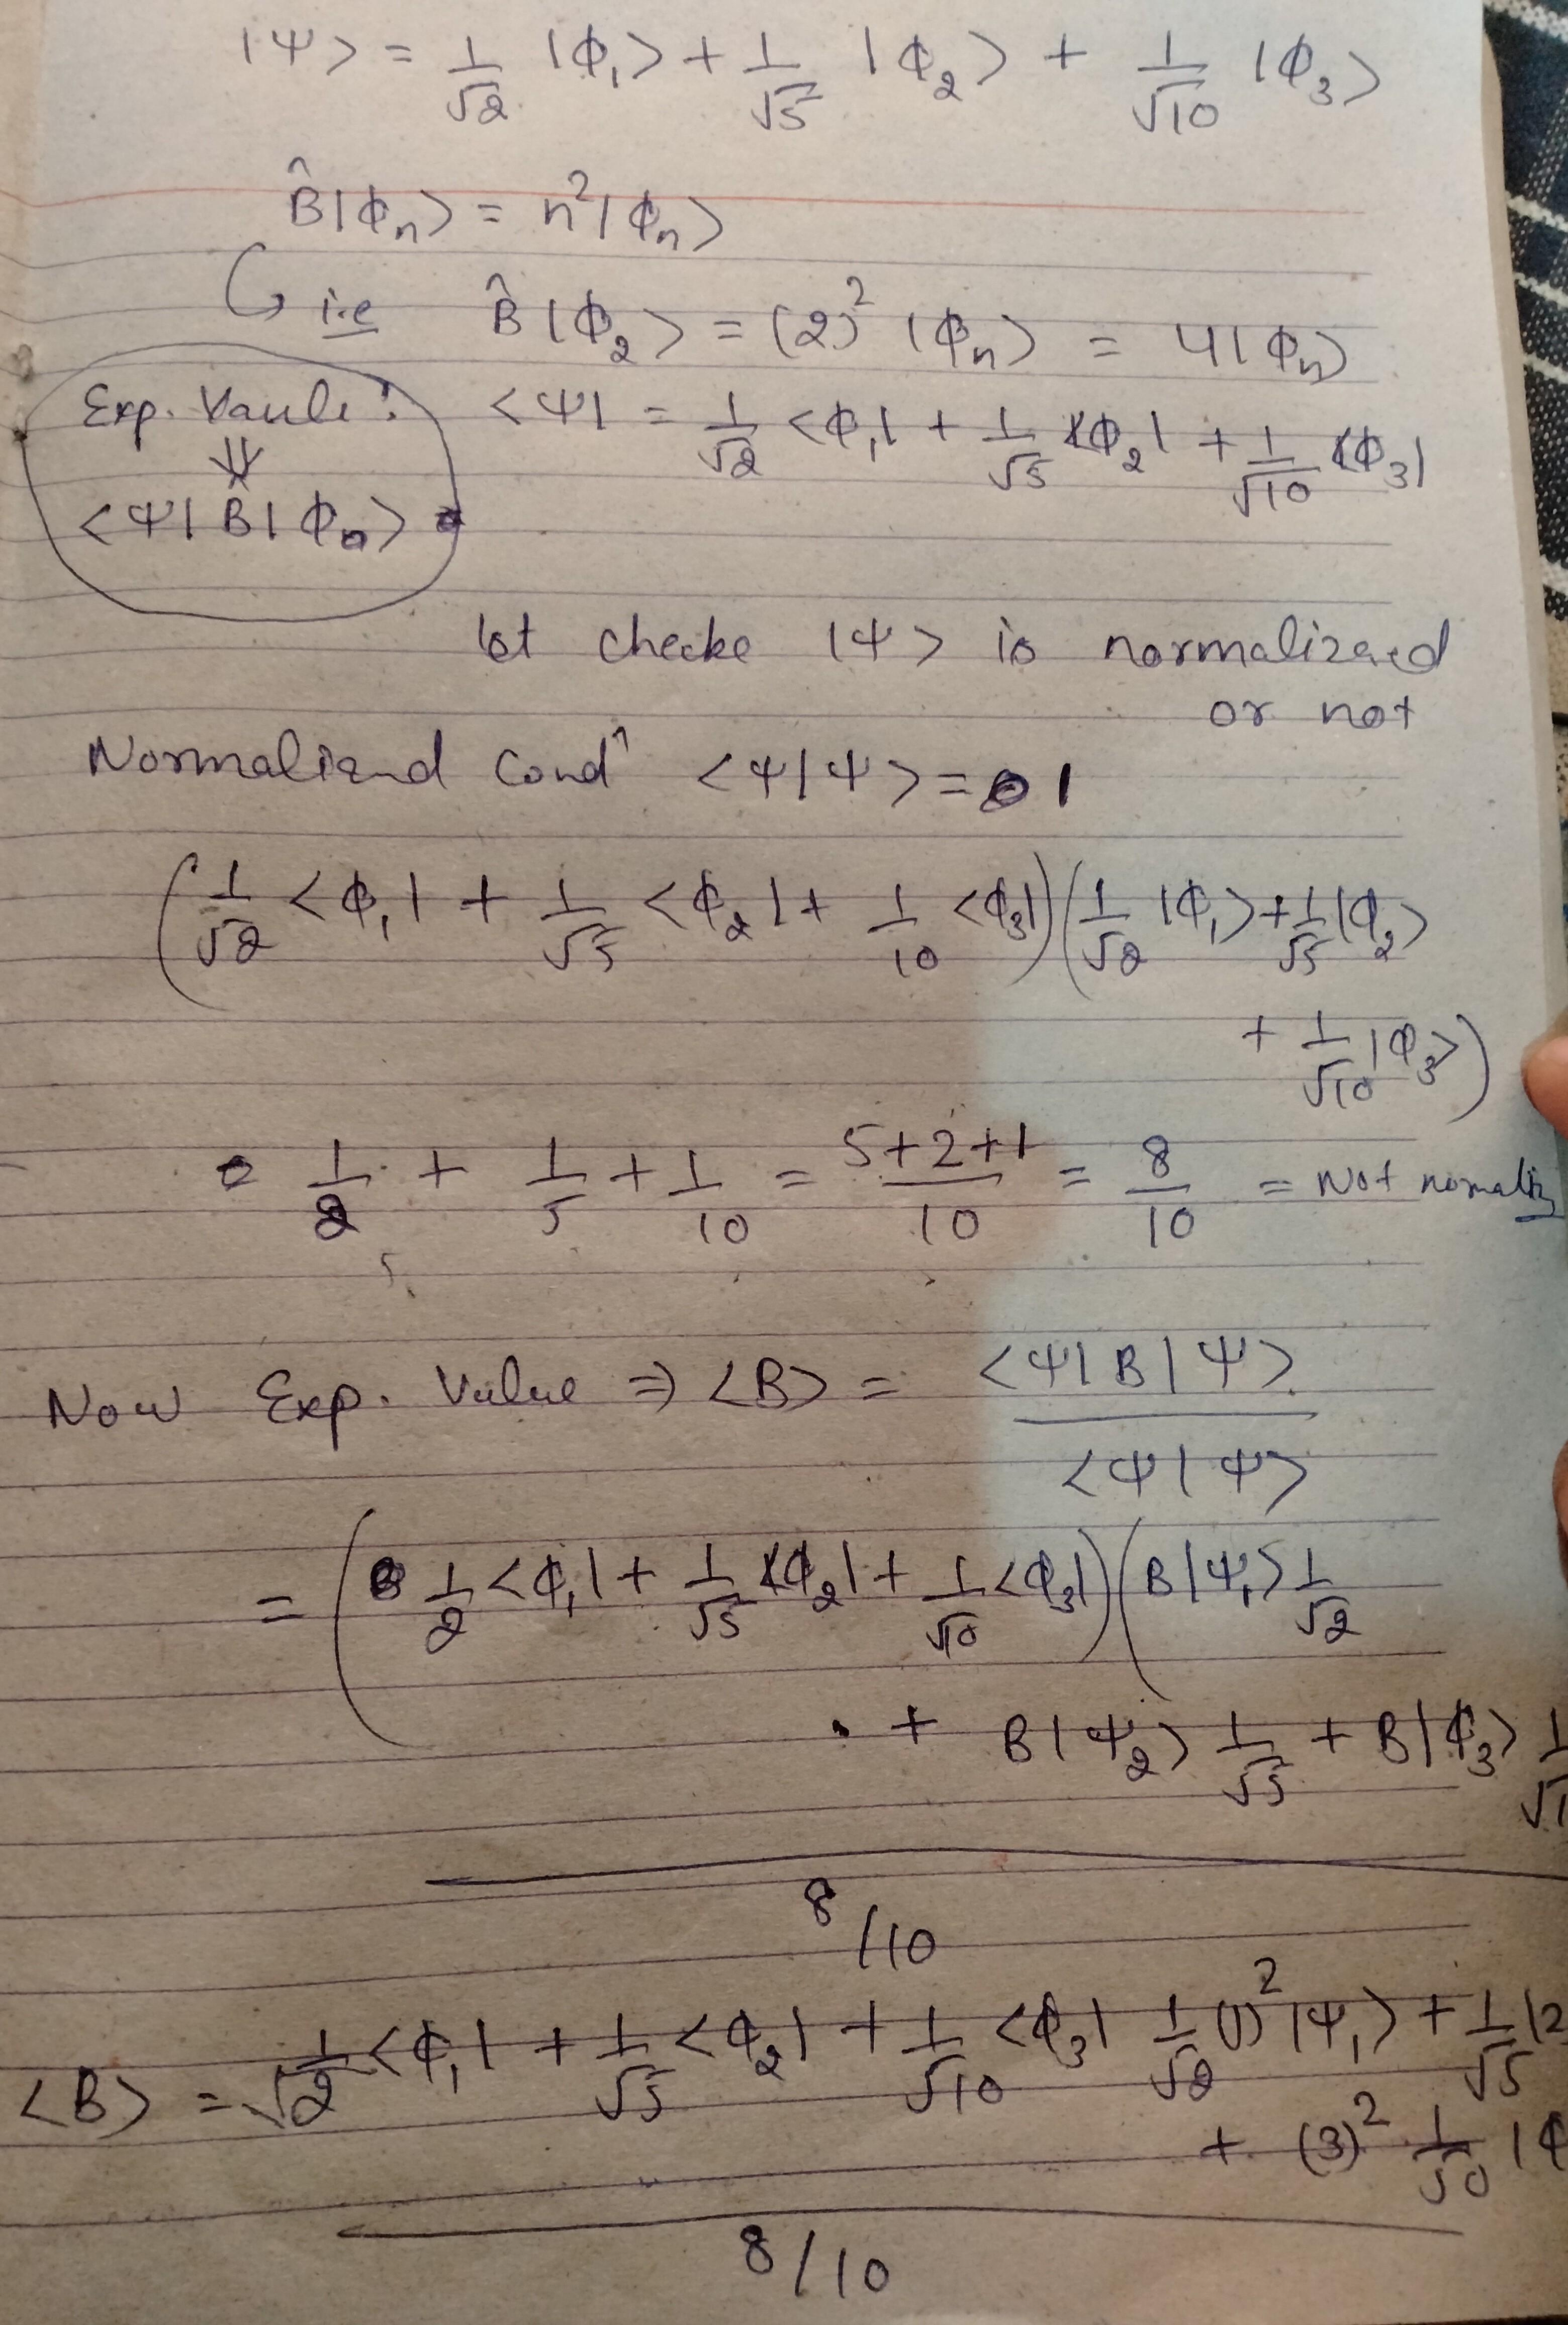 |Ψ> = 1/√2 |ϕ₁> + 1/√5 |ϕ₂> + 1/√10 |ϕ₃>
B̂|ϕₙ> = n²|ϕₙ>
i.e B̂|ϕ₂> = (2)² |ϕₙ> = 4|ϕₙ>
Exp. Vaule:
⇓
<Ψ|B̂|ϕₙ>
<Ψ| = 1/√2 <ϕ₁| + 1/√5 <ϕ₂| + 1/√10 <ϕ₃|
let checke |Ψ> is normalizaed
or not
Normaliand Condⁿ <Ψ|Ψ> = 1
(1/√2 <ϕ₁| + 1/√5 <ϕ₂| + 1/10 <ϕ₃|)(1/√2 |ϕ₁> + 1/√5 |ϕ₂>
+ 1/√10 |ϕ₃>)
= 1/2 + 1/5 + 1/10 = 5+2+1/10 = 8/10 = Not nomaliz
Now Exp. Value ⇒ <B> = <Ψ|B|Ψ> / <Ψ|Ψ>
= (1/2 <ϕ₁| + 1/√5 <ϕ₂| + 1/√10 <ϕ₃|)(B|Ψ₁> 1/√2
+ B|Ψ₂> 1/√5 + B|ϕ₃> 1/√1
8/10
<B> = 1/√2 <ϕ₁| + 1/√5 <ϕ₂| + 1/√10 <ϕ₃| 1/√2 (1)² |Ψ₁> + 1/√5 (2
+ (3)² 1/√10 |ϕ
8/10